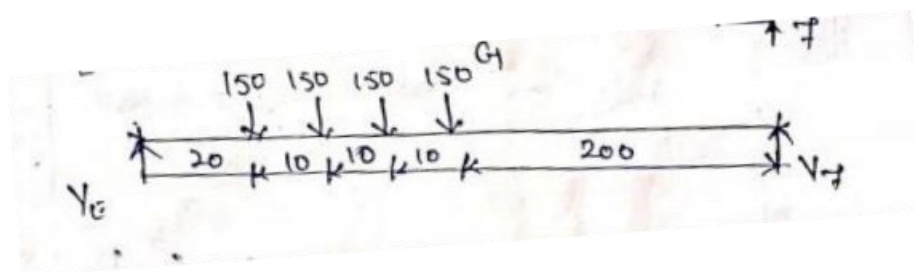 7
150 150 150 150 G
20 10 10 10 200
VE V7